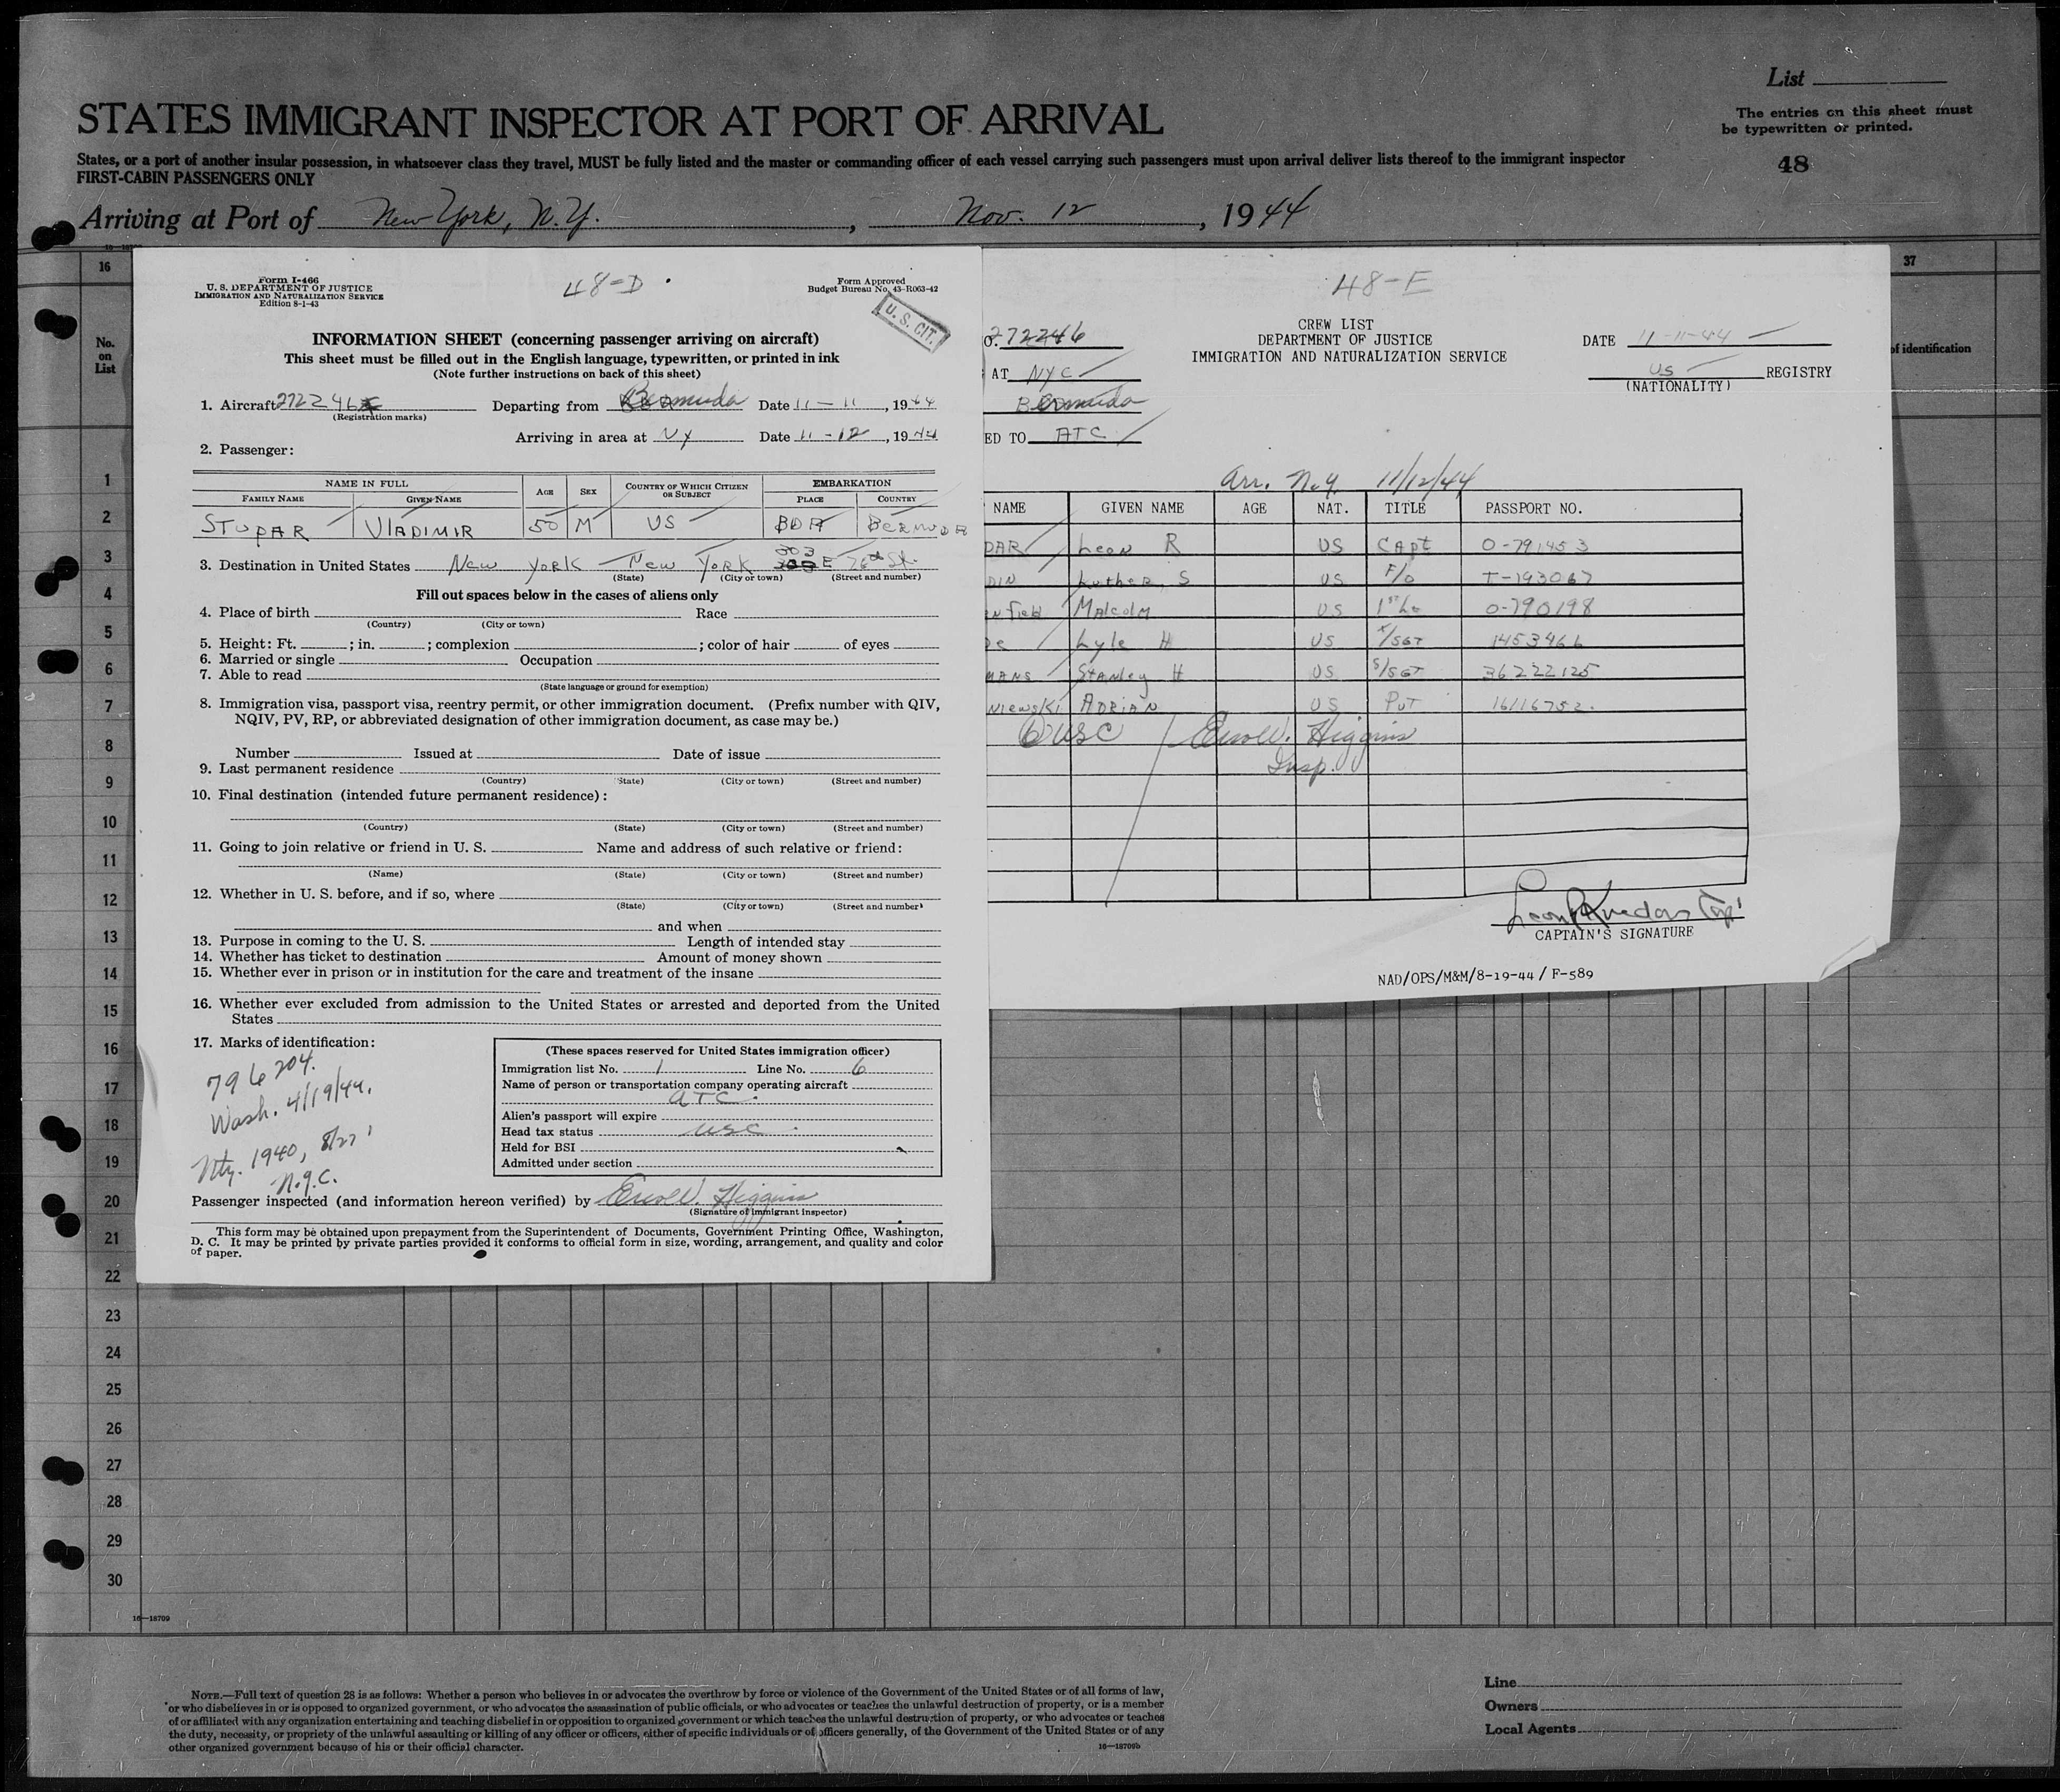 List
STATES IMMIGRANT INSPECTOR AT PORT OF ARRIVAL
The entries on this sheet must
be typewritten or printed.
States, or a port of another insular possession, in whatsoever class they travel, MUST be fully listed and the master or commanding officer of each vessel carrying such passengers must upon arrival deliver lists thereof to the immigrant inspector
FIRST-CABIN PASSENGERS ONLY
48
Arriving at Port of New York, N.Y. , Nov. 12 , 1944
16
37
No.
on
List
of identification
1
2
3
4
5
6
7
8
9
10
11
12
13
14
15
16
17
18
19
20
21
22
23
24
25
26
27
28
29
30
16—18709
Form I-466
U. S. DEPARTMENT OF JUSTICE
IMMIGRATION AND NATURALIZATION SERVICE
Edition 8-1-43
48-D
Form Approved
Budget Bureau No. 43-R063-42
U. S. CIT.
INFORMATION SHEET (concerning passenger arriving on aircraft)
This sheet must be filled out in the English language, typewritten, or printed in ink
(Note further instructions on back of this sheet)
1. Aircraft 272246 Departing from Bermuda Date 11-11, 1944
(Registration marks)
Arriving in area at NY Date 11-12, 1944
2. Passenger:
NAME IN FULL AGE SEX COUNTRY OF WHICH CITIZEN OR SUBJECT EMBARKATION
FAMILY NAME GIVEN NAME PLACE COUNTRY
STUPAR VLADIMIR 50 M US BDA BERMUDA
3. Destination in United States New York New York 303 E 76th St.
(State) (City or town) (Street and number)
Fill out spaces below in the cases of aliens only
4. Place of birth Race
(Country) (City or town)
5. Height: Ft. ; in. ; complexion ; color of hair of eyes
6. Married or single Occupation
7. Able to read
(State language or ground for exemption)
8. Immigration visa, passport visa, reentry permit, or other immigration document. (Prefix number with QIV,
NQIV, PV, RP, or abbreviated designation of other immigration document, as case may be.)
Number Issued at Date of issue
9. Last permanent residence
(Country) (State) (City or town) (Street and number)
10. Final destination (intended future permanent residence):
(Country) (State) (City or town) (Street and number)
11. Going to join relative or friend in U. S. Name and address of such relative or friend:
(Name) (State) (City or town) (Street and number)
12. Whether in U. S. before, and if so, where
(State) (City or town) (Street and number)
and when
13. Purpose in coming to the U. S. Length of intended stay
14. Whether has ticket to destination Amount of money shown
15. Whether ever in prison or in institution for the care and treatment of the insane
16. Whether ever excluded from admission to the United States or arrested and deported from the United
States
17. Marks of identification:
796204.
Wash. 4/19/44.
Nty. 1940, 8/27
N.Y.C.
(These spaces reserved for United States immigration officer)
Immigration list No. 1 Line No. 6
Name of person or transportation company operating aircraft
ATC.
Alien's passport will expire
Head tax status USC.
Held for BSI
Admitted under section
Passenger inspected (and information hereon verified) by Higgins
(Signature of immigrant inspector)
This form may be obtained upon prepayment from the Superintendent of Documents, Government Printing Office, Washington,
D. C. It may be printed by private parties provided it conforms to official form in size, wording, arrangement, and quality and color
of paper.
48-E
O. 272246
CREW LIST
DEPARTMENT OF JUSTICE
IMMIGRATION AND NATURALIZATION SERVICE
DATE 11-11-44
AT NYC
US REGISTRY
(NATIONALITY)
Bermuda
ED TO ATC
Arr. N.Y. 11/12/44
NAME GIVEN NAME AGE NAT. TITLE PASSPORT NO.
DAR Leon R US CAPT O-791453
DIN Luther S US F/O T-193067
NField Malcolm US 1st Lt O-790198
De Lyle H US T/SGT 1453466
MANS Stanley H US S/SGT 36222125
Niewski ADRIAN US PVT 16116752
6 USC Higgins
Insp.
CAPTAIN'S SIGNATURE
NAD/OPS/M&M/8-19-44/F-589
NOTE.—Full text of question 28 is as follows: Whether a person who believes in or advocates the overthrow by force or violence of the Government of the United States or of all forms of law,
or who disbelieves in or is opposed to organized government, or who advocates the assassination of public officials, or who advocates or teaches the unlawful destruction of property, or is a member
of or affiliated with any organization entertaining and teaching disbelief in or opposition to organized government or which teaches the unlawful destruction of property, or who advocates or teaches
the duty, necessity, or propriety of the unlawful assaulting or killing of any officer or officers, either of specific individuals or of officers generally, of the Government of the United States or of any
other organized government because of his or their official character.
16—18709b
Line
Owners
Local Agents